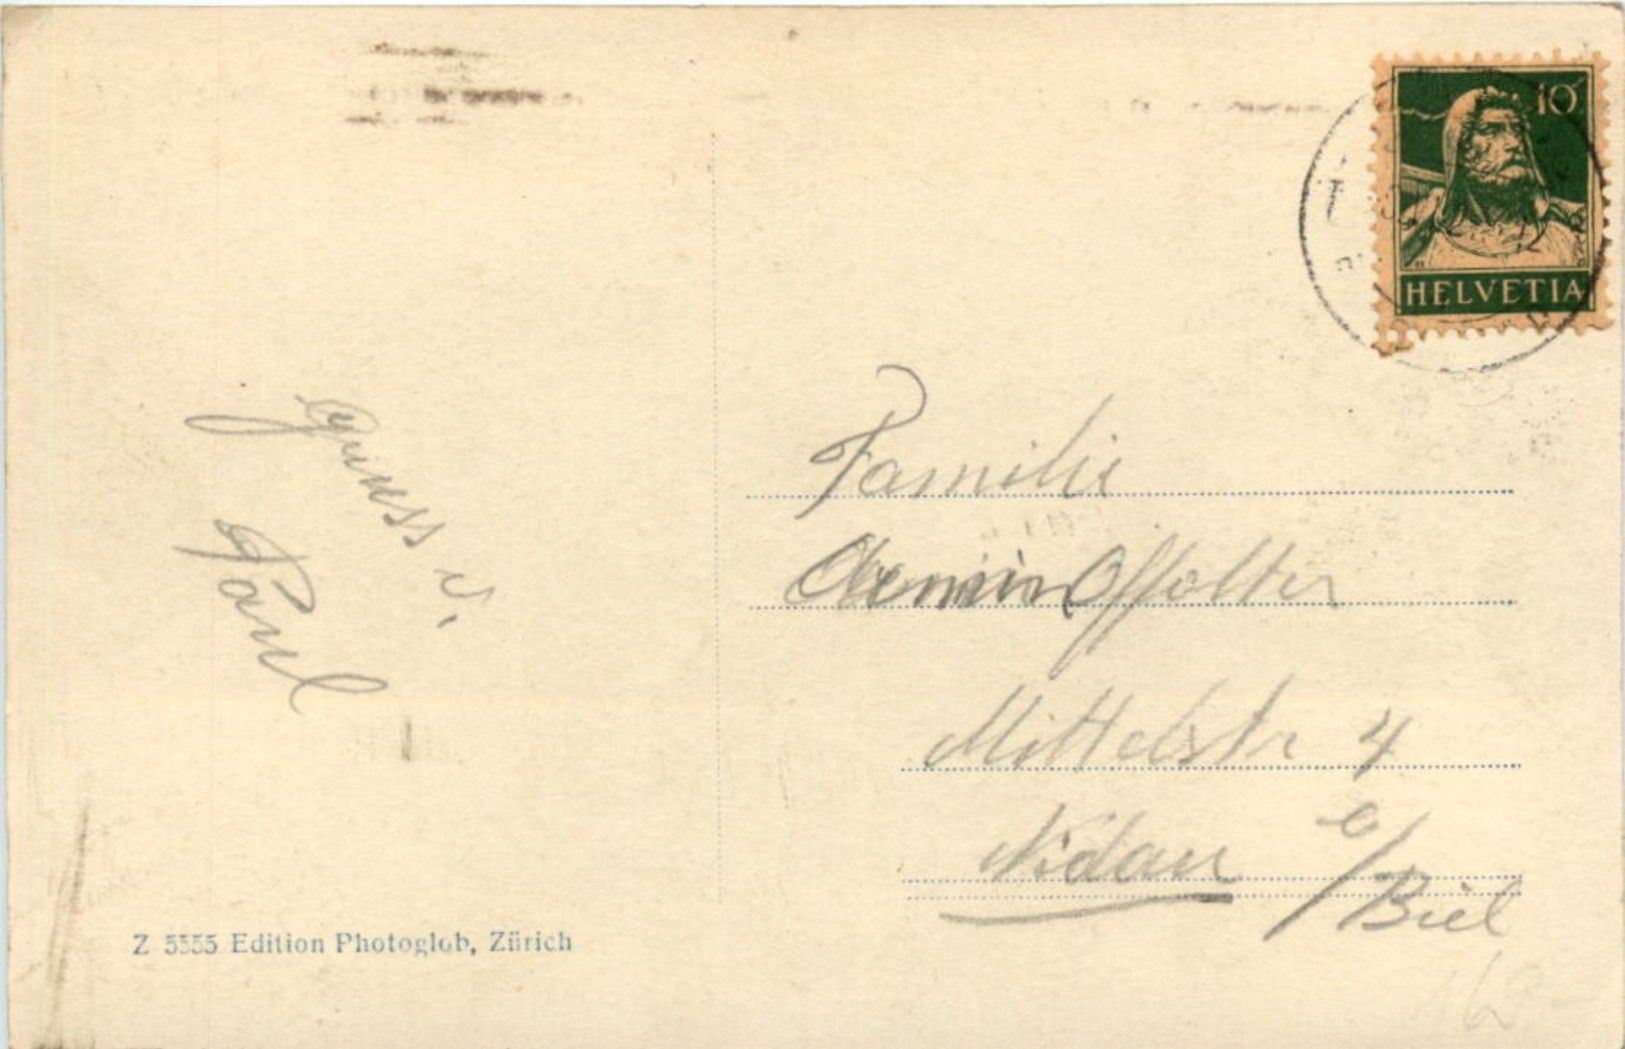 10
HELVETIA
Gruss v.
Paul
Familie
Armin Offolter
Mittelstr 4
Nidau b/Biel
Z 5555 Edition Photoglob, Zürich